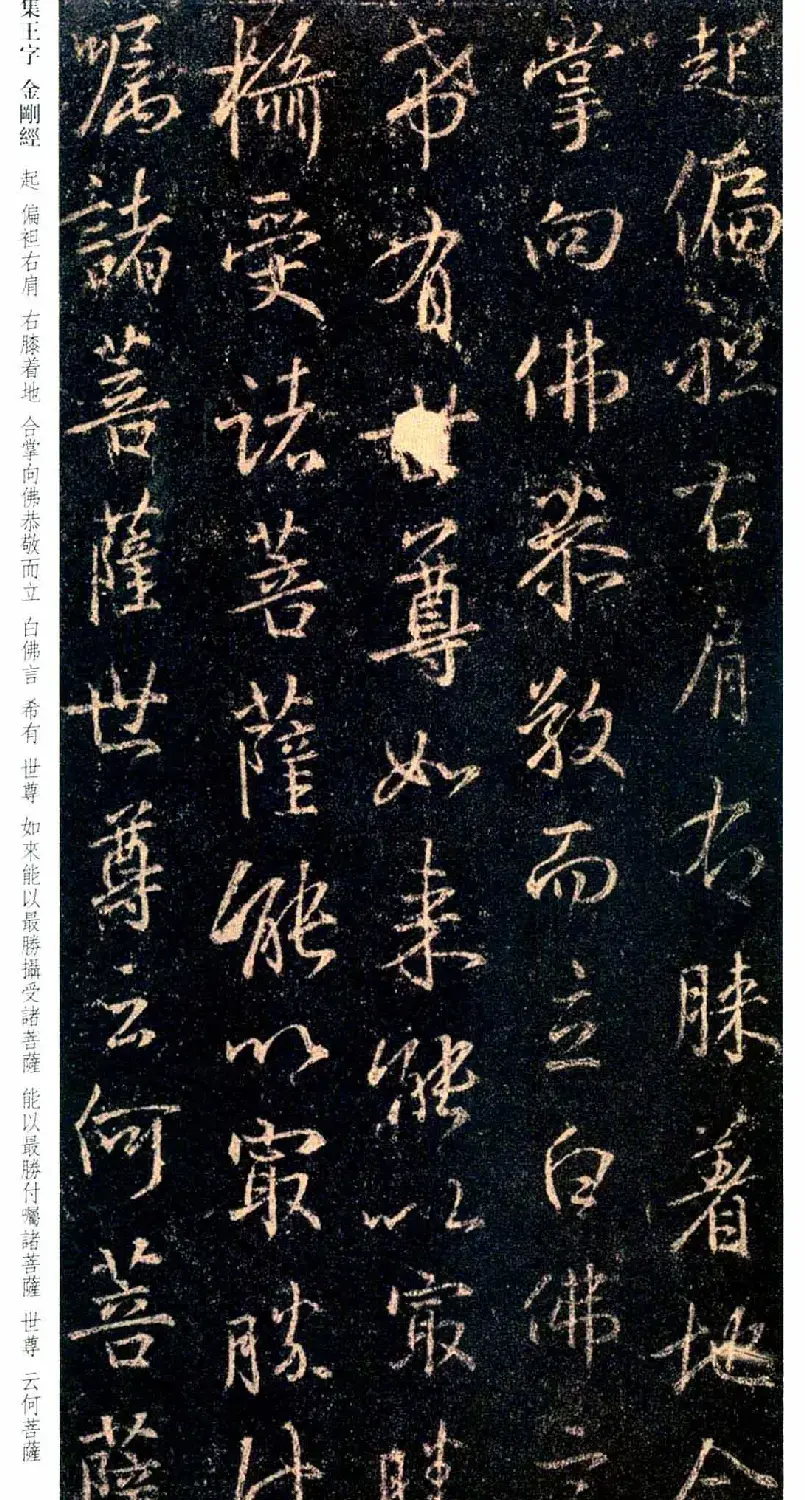 起偏袒右肩右膝着地合
掌向佛恭敬而立白佛言
希有世尊如来能以最勝
攝受諸菩薩能以最勝付
囑諸菩薩世尊云何菩薩
集王字 金剛經 起 偏袒右肩 右膝着地 合掌向佛恭敬而立 白佛言 希有 世尊 如來能以最勝攝受諸菩薩 能以最勝付囑諸菩薩 世尊 云何菩薩